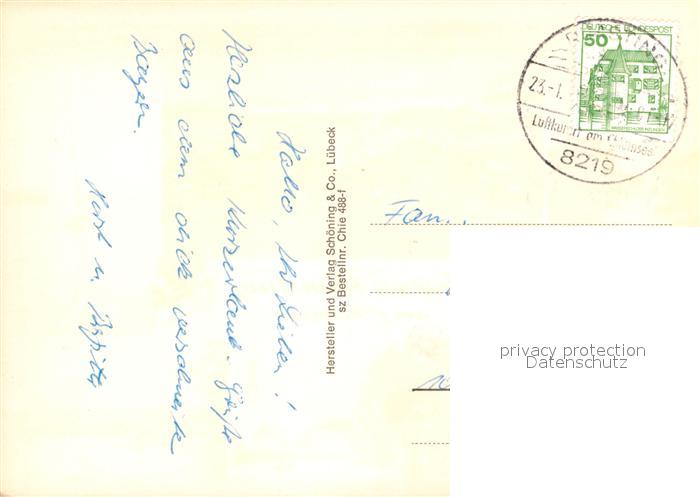 Hallo, Ihr Lieben!
Herzliche Kurzurlaub-Grüße
aus dem dick verschneiten
Bayern.
Horst u.
Hersteller und Verlag Schöning & Co., Lübeck
sz Bestellnr. Chie 488-f
DEUTSCHE BUNDESPOST
50
WASSERSCHLOSS INZLINGEN
23.-1.
Luftkurort am Chiemsee
8219
Fam.
privacy protection
Datenschutz